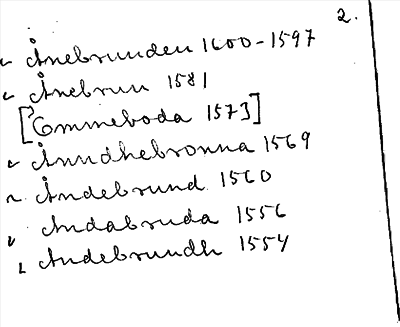 2.
Ånebrunden 1600-1597
Ånebrun 1581
[Emmeboda 1573]
Ånndhebronna 1569
Åndebrund 1560
Andabruda 1556
Andebrundh 1554